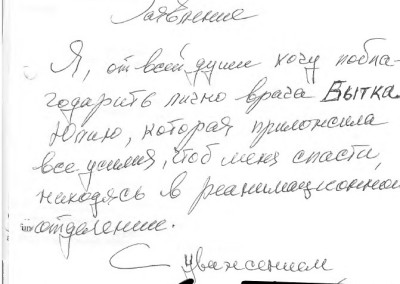 Заявление
Я, от всей души хочу побла-
годарить лично врача Бытка
Юлию, которая приложила
все усилия, чтоб меня спасти,
находясь в реанимационном
отделение.
С уважением